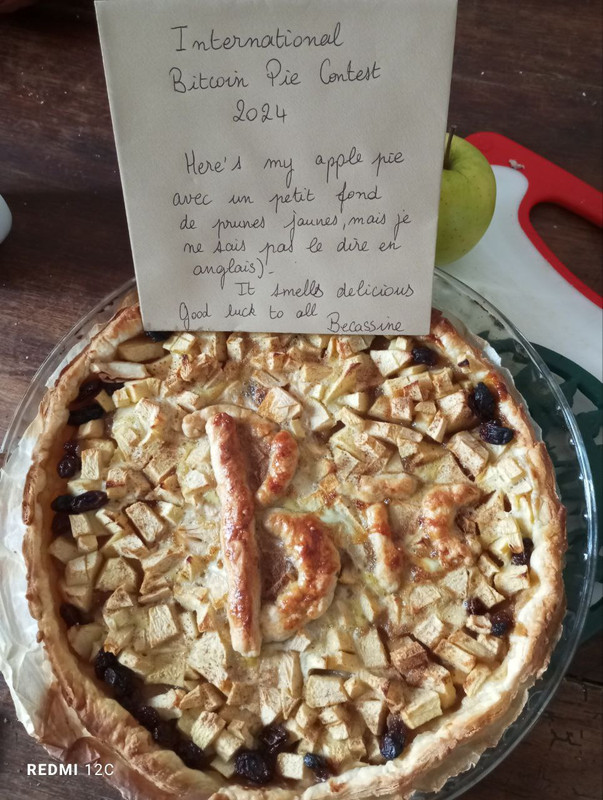 International
Bitcoin Pie Contest
2024
Here's my apple pie
avec un petit fond
de prunes jaunes, mais je
ne sais pas le dire en
anglais).
It smells delicious
Good luck to all
Becassine
REDMI 12C